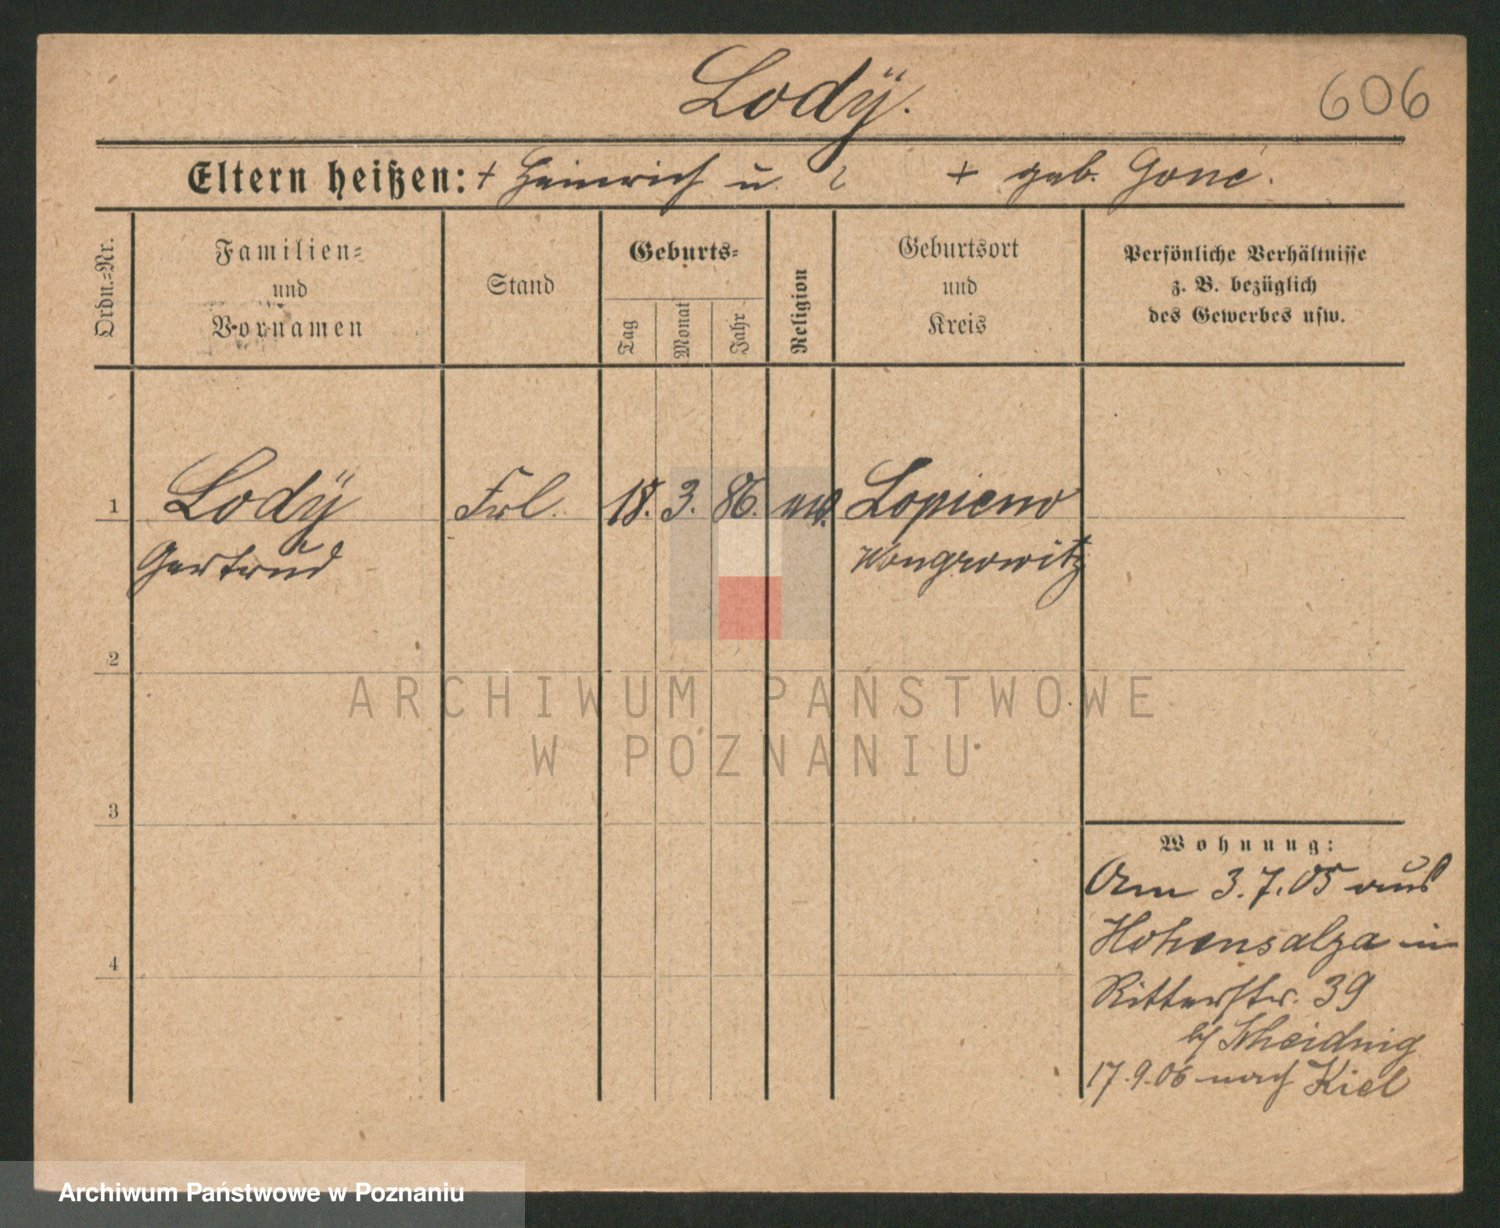 Lodÿ.
606
Eltern heißen: + Heinrich u. ? + geb. Goné.
Ordn.=Nr.
Familien= und Vornamen
Stand
Geburts=
Tag
Monat
Jahr
Religion
Geburtsort und Kreis
Persönliche Verhältnisse z. B. bezüglich des Gewerbes usw.
1 Lodÿ Frl. 18. 3. 86. Lopieno
Gertrud Wongrowitz
2
3
4
Wohnung:
Am 3.7.05 aus
Hohensalza in
Ritterstr. 39
17.9.06 nach Kiel
ARCHIWUM PAŃSTWOWE
W POZNANIU
Archiwum Państwowe w Poznaniu